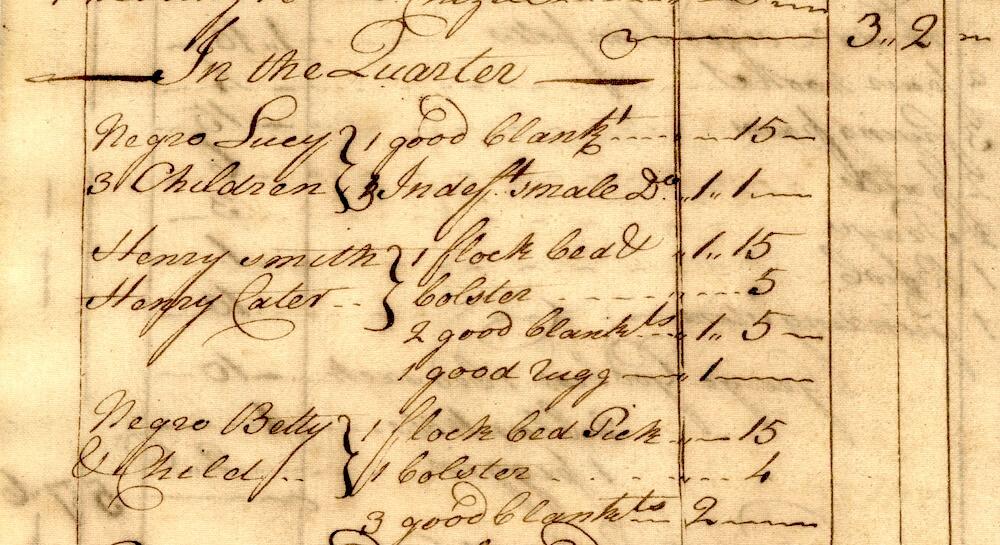 3,, 2 —
In the Quarter
Negro Lucy } 1 good blankt ---- 15 —
3 Children { 3 Indeft smale Do ,, 1,, 1 —
Henry smith } 1 flock bed & ,, 1,, 15
Henry Cater -- } bolster - - - - ,, --- 5
2 good blankts ,, 1,, 5 —
1 good rugg — ,, 1 —
Negro Betty } 1 flock bed Tick ,, — 15
& Child -- } 1 bolster - - - - ,, -- 4
3 good blankts — 2 —